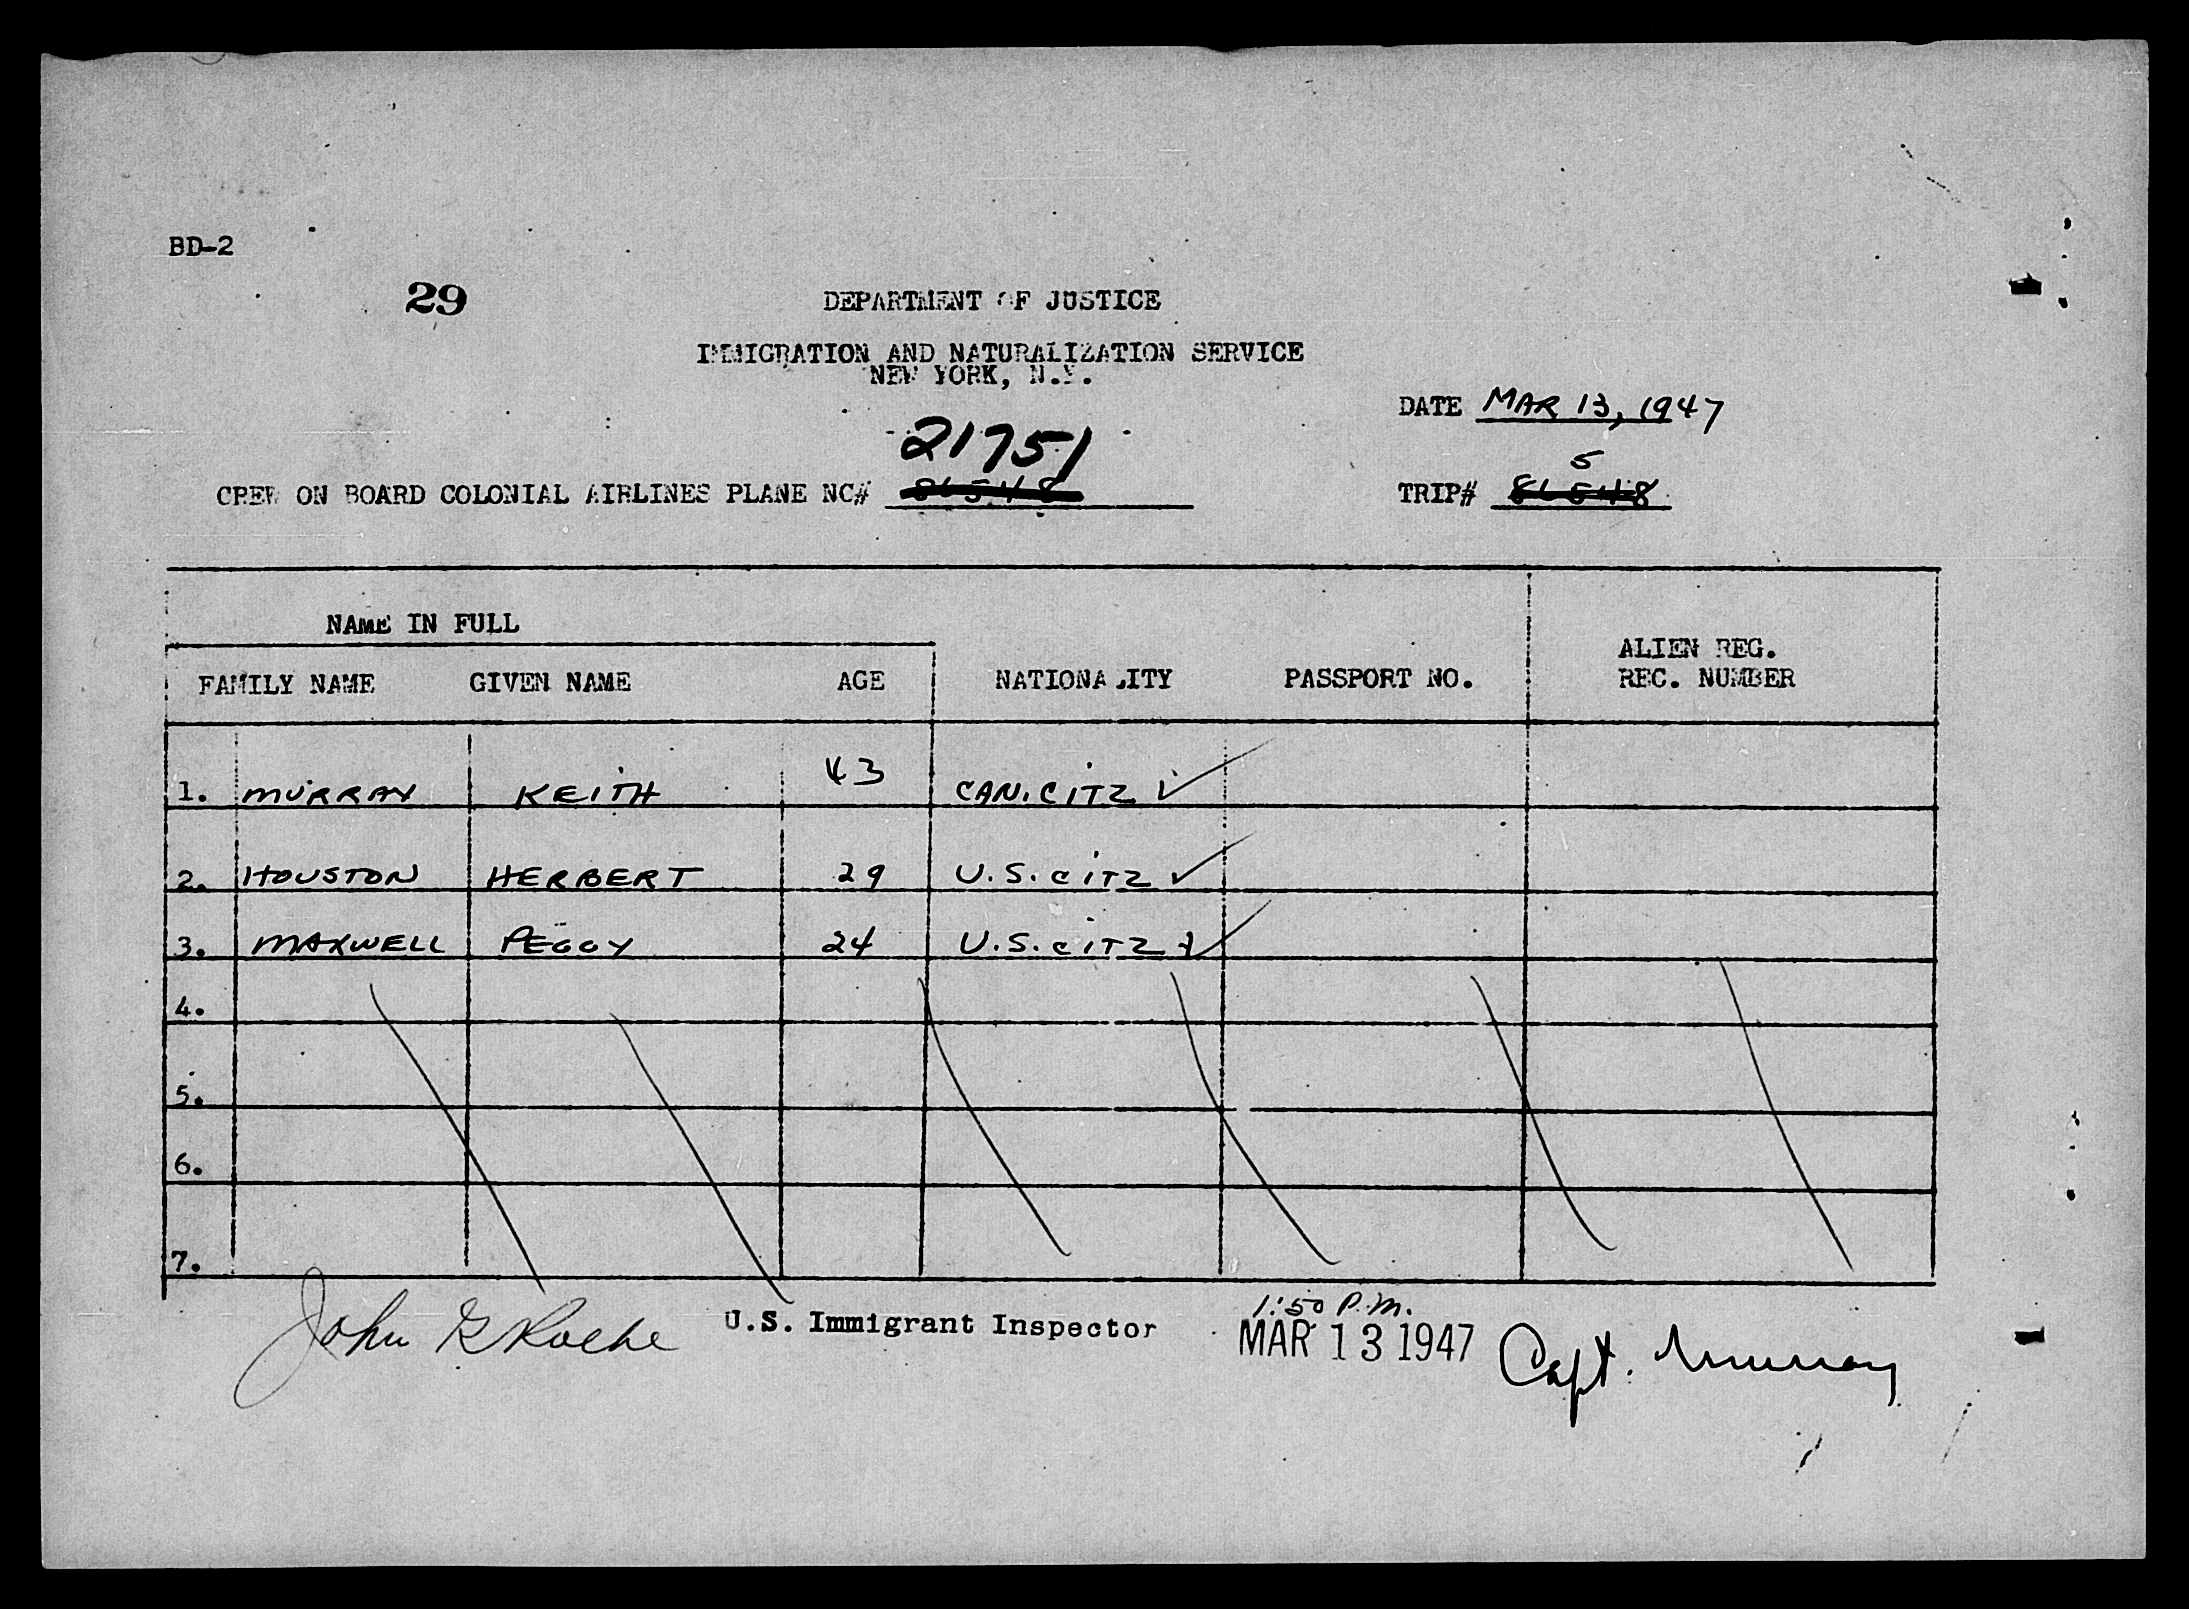 BD-2
29
DEPARTMENT OF JUSTICE
IMMIGRATION AND NATURALIZATION SERVICE
NEW YORK, N.Y.
DATE MAR 13, 1947
21751
5
CREW ON BOARD COLONIAL AIRLINES PLANE NC# 86548 TRIP# 86548
NAME IN FULL
ALIEN REG.
FAMILY NAME GIVEN NAME AGE NATIONALITY PASSPORT NO. REC. NUMBER
1. MURRAY KEITH 43 CAN. CITZ
2. HOUSTON HERBERT 29 U.S. CITZ
3. MAXWELL PEGGY 24 U.S. CITZ
4.
5.
6.
7.
1:50 P.M.
John G Roche U.S. Immigrant Inspector MAR 13 1947 Capt. Murray